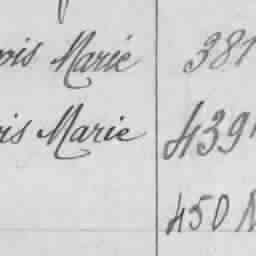 ois Marie 381
is Marie 439
450 N